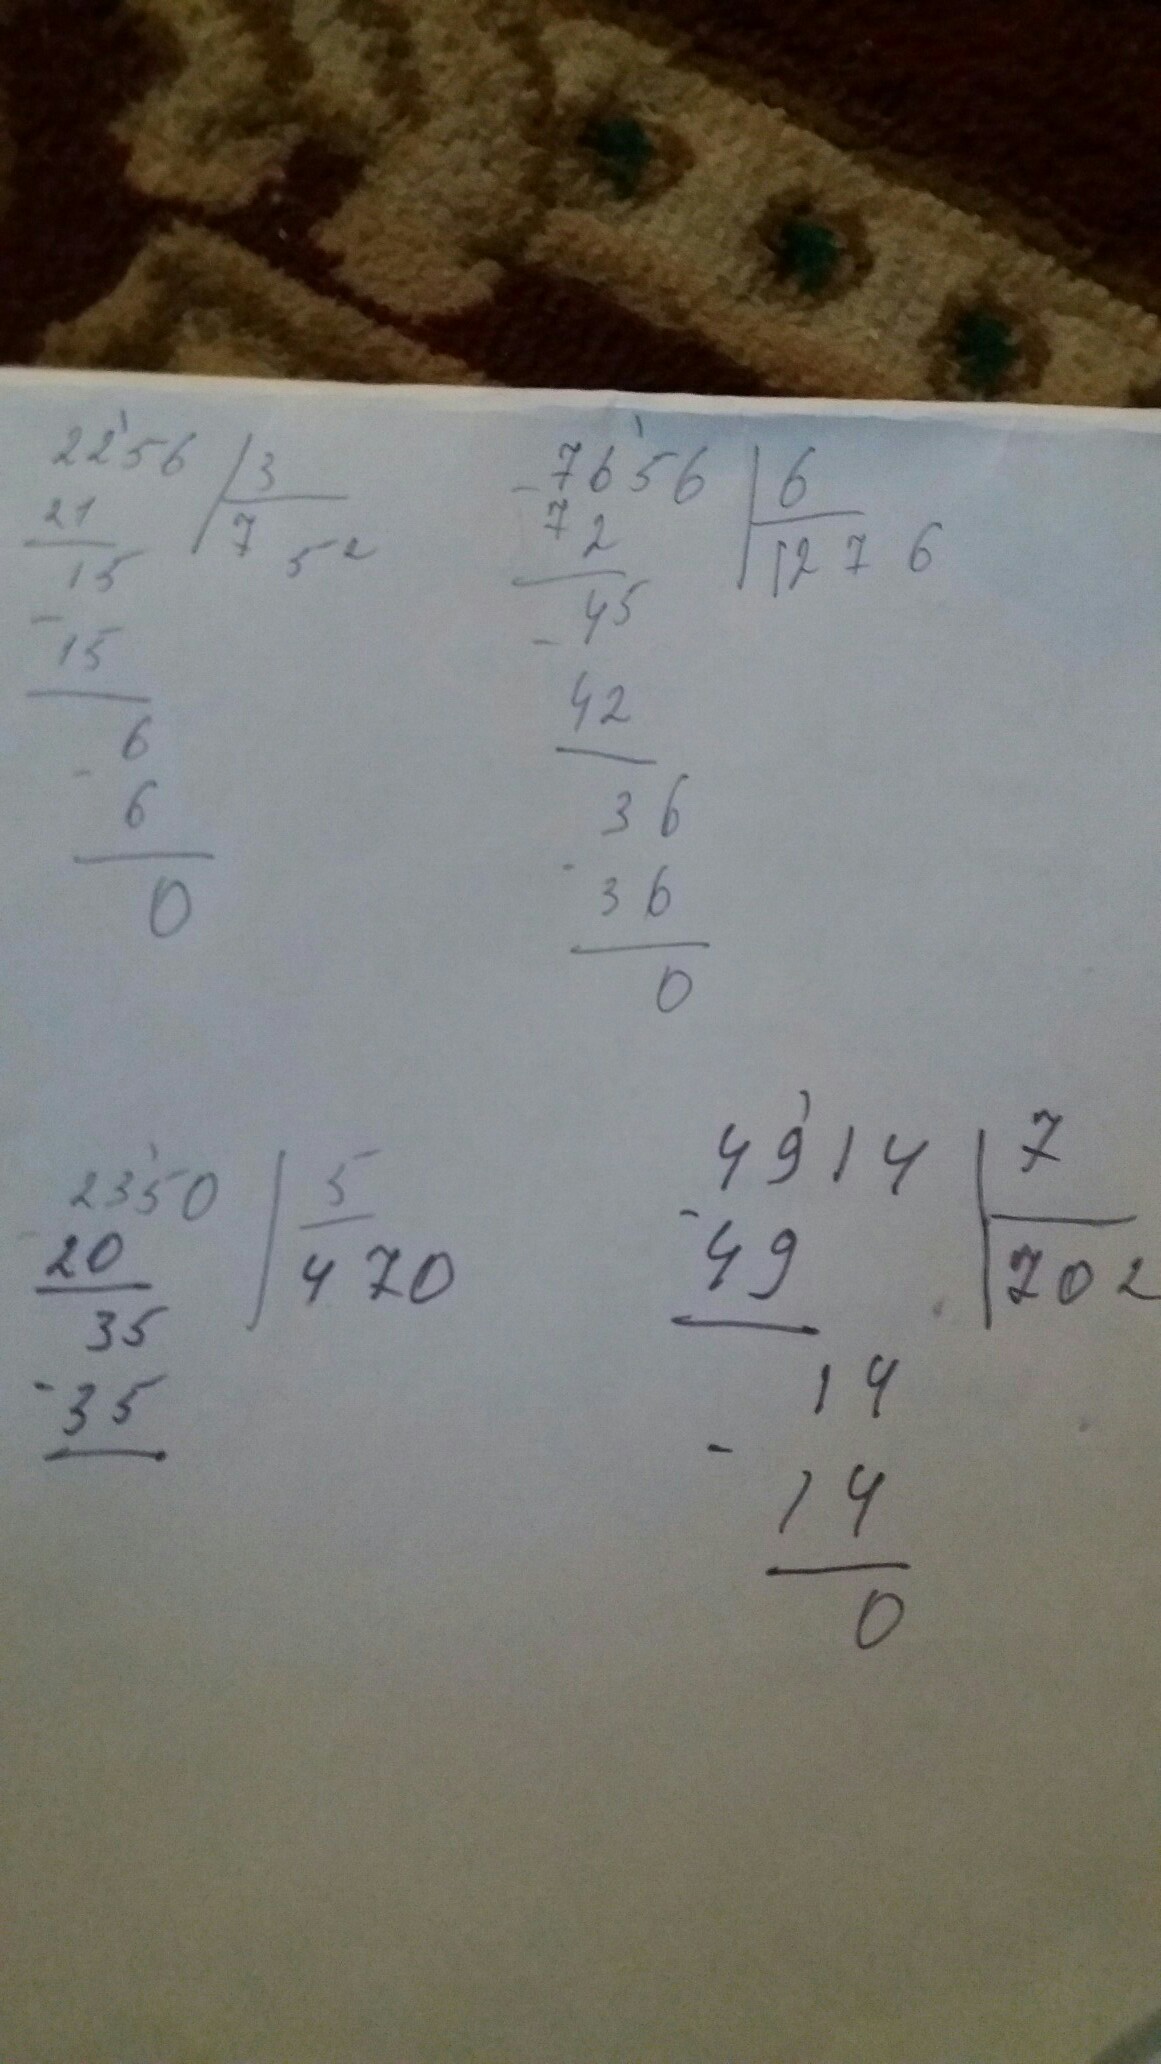 2256 3
21 752
15
- 15
6
- 6
0
- 7656 6
72 1276
45
- 42
36
- 36
0
- 2350 5
20 470
35
- 35
4914 7
- 49 702
14
- 14
0